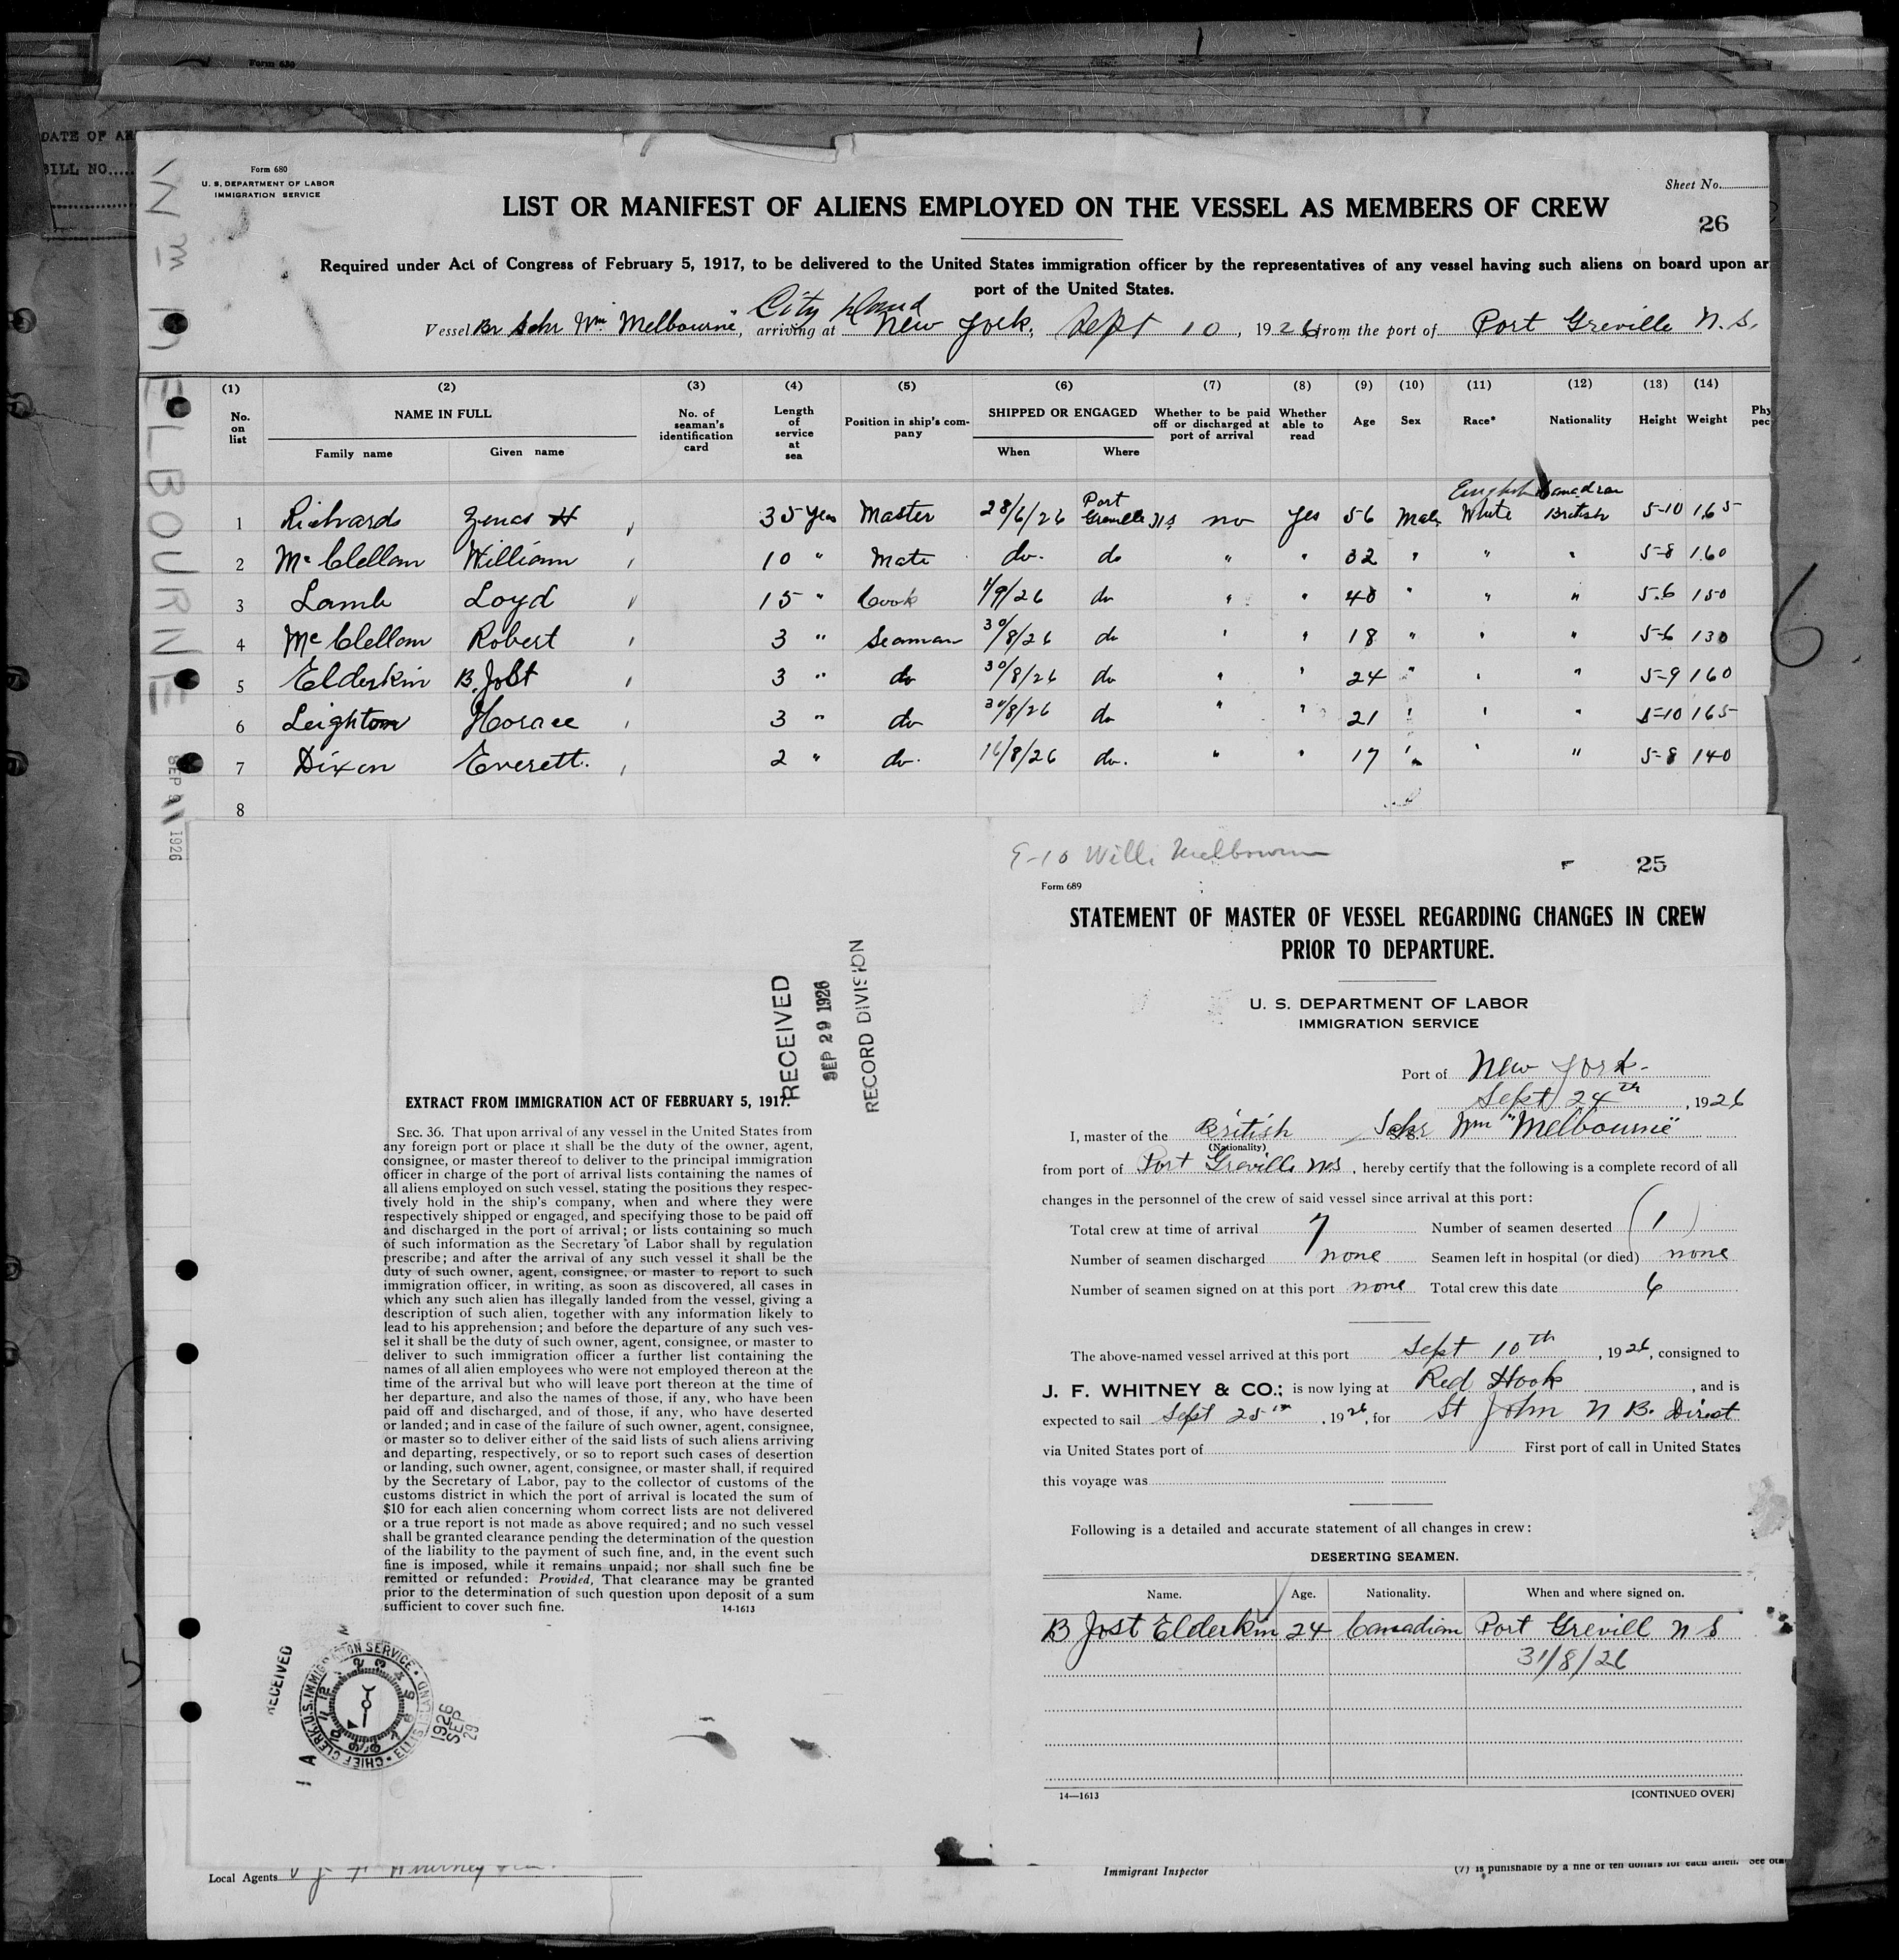 Form 630
DATE OF AR
BILL NO.....
Form 680
U. S. DEPARTMENT OF LABOR
IMMIGRATION SERVICE
Sheet No.
LIST OR MANIFEST OF ALIENS EMPLOYED ON THE VESSEL AS MEMBERS OF CREW
26
Required under Act of Congress of February 5, 1917, to be delivered to the United States immigration officer by the representatives of any vessel having such aliens on board upon ar
port of the United States.
City Island
Vessel Br Schr Wm Melbourne, arriving at New York, Sept 10, 1926, from the port of Port Greville N.S.
Wm MELBOURNE
SEP 1926
(1) (2) (3) (4) (5) (6) (7) (8) (9) (10) (11) (12) (13) (14)
No. on list NAME IN FULL Family name Given name No. of seaman's identification card Length of service at sea Position in ship's company SHIPPED OR ENGAGED When Where Whether to be paid off or discharged at port of arrival Whether able to read Age Sex Race* Nationality Height Weight Phy pec
English Canadian
1 Richards Zenas H 35 Years Master 28/6/26 Port Greville NS no yes 56 Male White British 5-10 165
2 McClellan William 10 " Mate do. do " " 32 " " " 5-8 160
3 Lamb Loyd 15 " Cook 1/9/26 do " " 40 " " " 5-6 150
4 McClellan Robert 3 " Seaman 30/8/26 do " " 18 " " " 5-6 130
5 Elderkin B. Jost 3 " do 30/8/26 do " " 24 " " " 5-9 160
6 Leighton Horace 3 " do 30/8/26 do " " 21 " " " 5-10 165
7 Dixon Everett. 2 " do. 16/8/26 do. " " 17 " " " 5-8 140
8
9-10 Will. Melbourne
25
Form 689
STATEMENT OF MASTER OF VESSEL REGARDING CHANGES IN CREW
PRIOR TO DEPARTURE.
U. S. DEPARTMENT OF LABOR
IMMIGRATION SERVICE
Port of New York
Sept 24th, 1926
I, master of the British Schr Wm "Melbourne"
(Nationality)
from port of Port Greville NS, hereby certify that the following is a complete record of all
changes in the personnel of the crew of said vessel since arrival at this port:
Total crew at time of arrival 7 Number of seamen deserted (1)
Number of seamen discharged none Seamen left in hospital (or died) none
Number of seamen signed on at this port none Total crew this date 6
The above-named vessel arrived at this port Sept 10th, 1926, consigned to
J. F. WHITNEY & CO.; is now lying at Red Hook, and is
expected to sail Sept 25th, 1926, for St John N B. Direct
via United States port of First port of call in United States
this voyage was
Following is a detailed and accurate statement of all changes in crew:
DESERTING SEAMEN.
Name. Age. Nationality. When and where signed on.
B Jost Elderkin 24 Canadian Port Grevill N S
31/8/26
14—1613
[CONTINUED OVER]
RECEIVED
SEP 29 1926
RECORD DIVISION
EXTRACT FROM IMMIGRATION ACT OF FEBRUARY 5, 1917.
SEC. 36. That upon arrival of any vessel in the United States from
any foreign port or place it shall be the duty of the owner, agent,
consignee, or master thereof to deliver to the principal immigration
officer in charge of the port of arrival lists containing the names of
all aliens employed on such vessel, stating the positions they respec-
tively hold in the ship's company, when and where they were
respectively shipped or engaged, and specifying those to be paid off
and discharged in the port of arrival; or lists containing so much
of such information as the Secretary of Labor shall by regulation
prescribe; and after the arrival of any such vessel it shall be the
duty of such owner, agent, consignee, or master to report to such
immigration officer, in writing, as soon as discovered, all cases in
which any such alien has illegally landed from the vessel, giving a
description of such alien, together with any information likely to
lead to his apprehension; and before the departure of any such ves-
sel it shall be the duty of such owner, agent, consignee, or master to
deliver to such immigration officer a further list containing the
names of all alien employees who were not employed thereon at the
time of the arrival but who will leave port thereon at the time of
her departure, and also the names of those, if any, who have been
paid off and discharged, and of those, if any, who have deserted
or landed; and in case of the failure of such owner, agent, consignee,
or master so to deliver either of the said lists of such aliens arriving
and departing, respectively, or so to report such cases of desertion
or landing, such owner, agent, consignee, or master shall, if required
by the Secretary of Labor, pay to the collector of customs of the
customs district in which the port of arrival is located the sum of
$10 for each alien concerning whom correct lists are not delivered
or a true report is not made as above required; and no such vessel
shall be granted clearance pending the determination of the question
of the liability to the payment of such fine, and, in the event such
fine is imposed, while it remains unpaid; nor shall such fine be
remitted or refunded: Provided, That clearance may be granted
prior to the determination of such question upon deposit of a sum
sufficient to cover such fine.
14-1613
RECEIVED
CHIEF CLERK U.S. IMMIGRATION SERVICE ELLIS ISLAND
1926
SEP
29
Local Agents J F Whitney
Immigrant Inspector
(7) is punishable by a fine of ten dollars for each alien. See oth